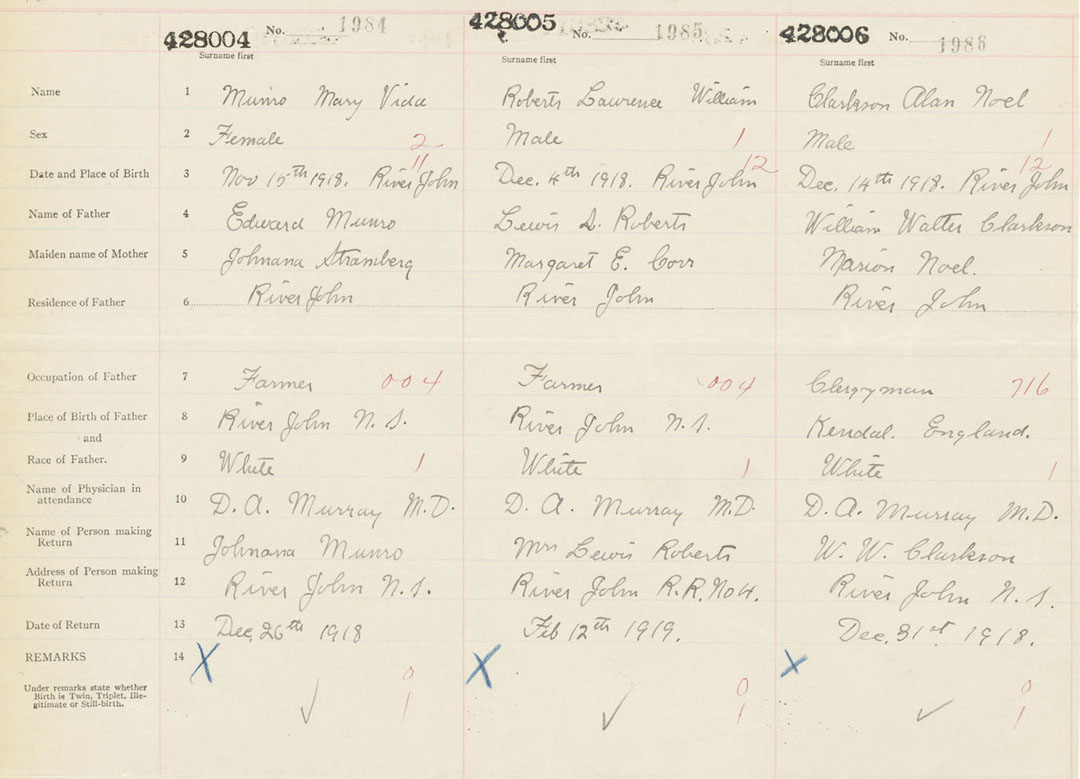 428004 No. 1984 428005 No. 1985 428006 No. 1986
Surname first Surname first Surname first
Name 1 Munro Mary Vida Roberts Lawrence William Clarkson Alan Noel
Sex 2 Female 2 Male 1 Male 1
11 12 12
Date and Place of Birth 3 Nov 15th 1918. River John Dec. 4th 1918. River John Dec. 14th 1918. River John
Name of Father 4 Edward Munro Lewis D. Roberts William Walter Clarkson
Maiden name of Mother 5 Johnana Stramberg Margaret E. Corr Marion Noel.
Residence of Father 6 River John River John River John
Occupation of Father 7 Farmer 004 Farmer 004 Clergyman 716
Place of Birth of Father 8 River John N.S. River John N.S. Kendal. England.
and
Race of Father. 9 White 1 White 1 White 1
Name of Physician in
attendance 10 D. A. Murray M.D. D. A. Murray M.D. D. A. Murray M.D.
Name of Person making
Return 11 Johnana Munro Mrs Lewis Roberts W. W. Clarkson
Address of Person making
Return 12 River John N.S. River John R.R. No 4. River John N.S.
Date of Return 13 Dec. 26th 1918 Feb 12th 1919. Dec. 31st 1918.
REMARKS 14 X X X
Under remarks state whether 0 0 0
Birth is Twin, Triplet, Ille-
gitimate or Still-birth. 1 1 1